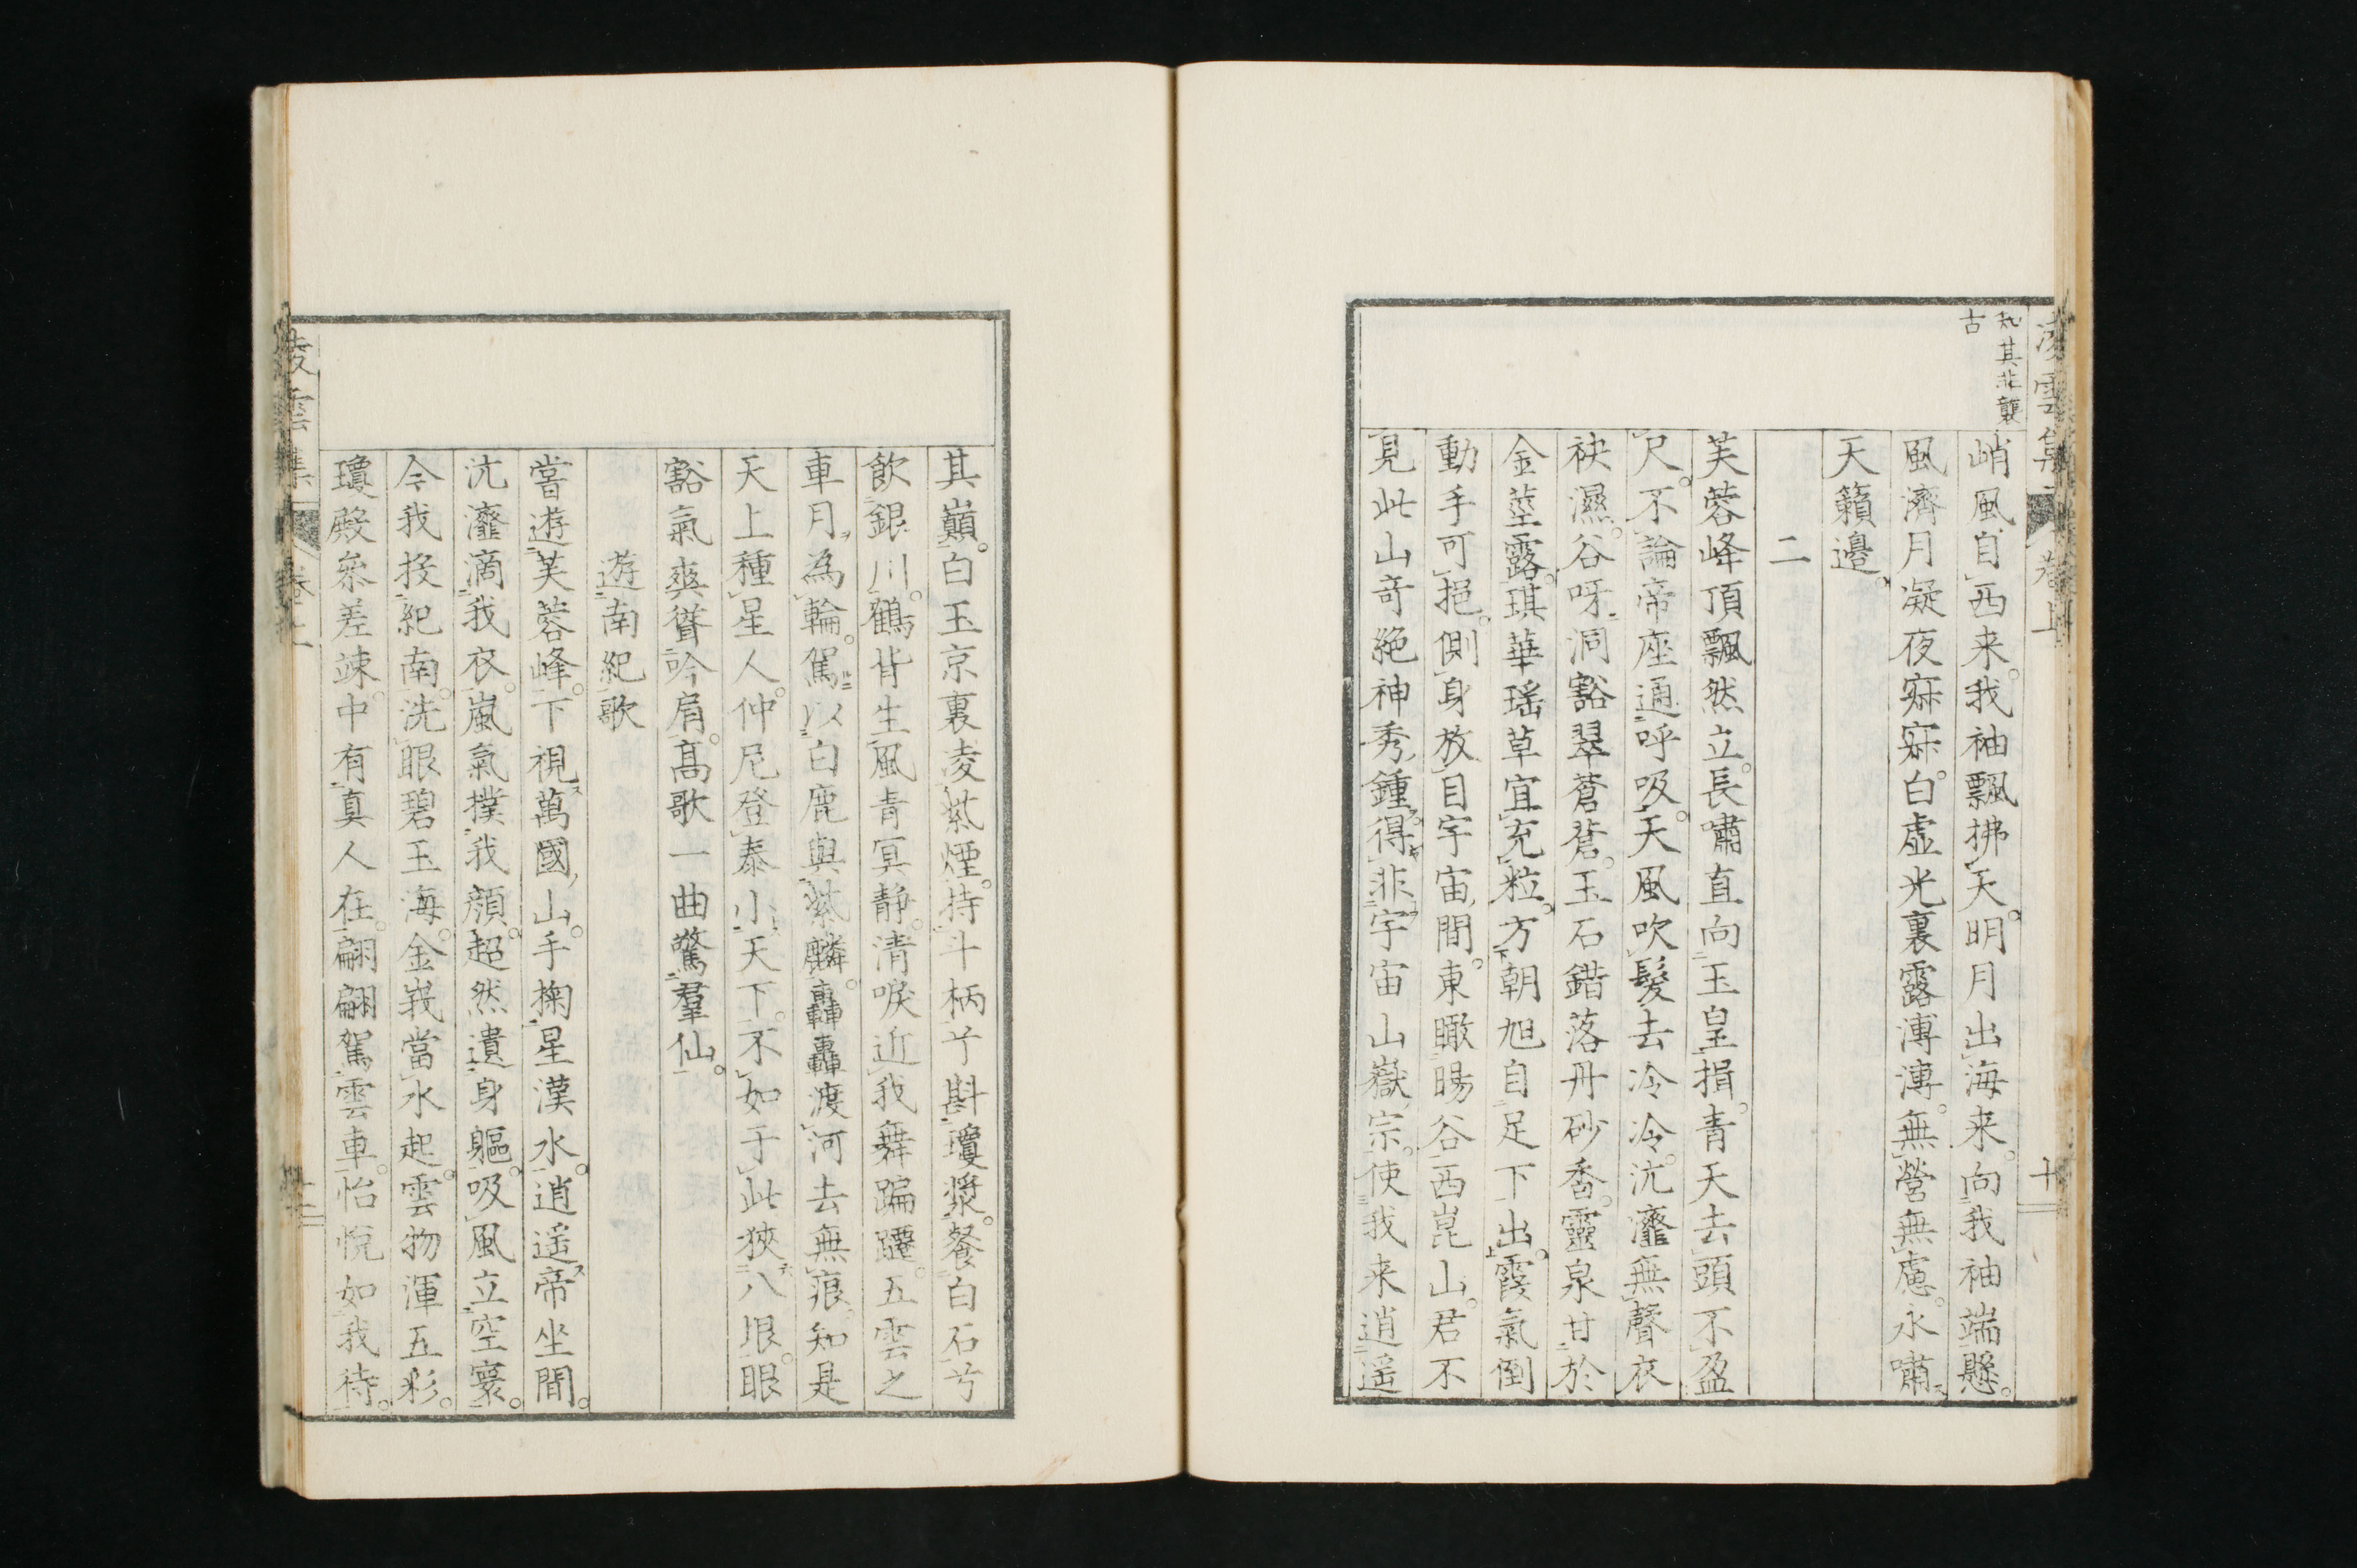 凌雲集 卷上 十一
知其非襲
古
峭風自西来我袖飄拂天明月出海来向我袖端懸
風濟月凝夜寂寂白虛光裏露漙漙無營無慮永嘯
天籟邊
二
芙蓉峰頂飄然立長嘯直向玉皇揖青天去頭不盈
尺不論帝座通呼吸天風吹髮去冷冷沆瀣無聲衣
袂濕谷呀洞豁翠蒼蒼玉石錯落丹砂香靈泉甘於
金莖露琪華瑤草宜充粒方朝旭自足下出霞氣倒
動手可挹側身放目宇宙間東瞰暘谷西崑山君不
見此山奇絶神秀鍾得非宇宙山嶽宗使我来逍遥
其巔白玉京裏凌紫煙持斗柄兮斟瓊漿餐白石兮
飲銀川鶴背生風青冥静清唳近我舞蹁躚五雲之
車月為輪駕以白鹿與紫麟轟轟渡河去無痕知是
天上種星人仲尼登泰小天下不如于此狹八垠眼
豁氣爽聳吟肩高歌一曲驚羣仙
遊南紀歌
嘗遊芙蓉峰下視萬國山手掬星漢水逍遥帝坐間
沆瀣滴我衣嵐氣撲我顔超然遺身軀吸風立空寰
今我投紀南洗眼碧玉海金峩當水起雲物渾五彩
瓊殿叅差竦中有真人在翩翩駕雲車怡悅如我待
凌雲集 卷上